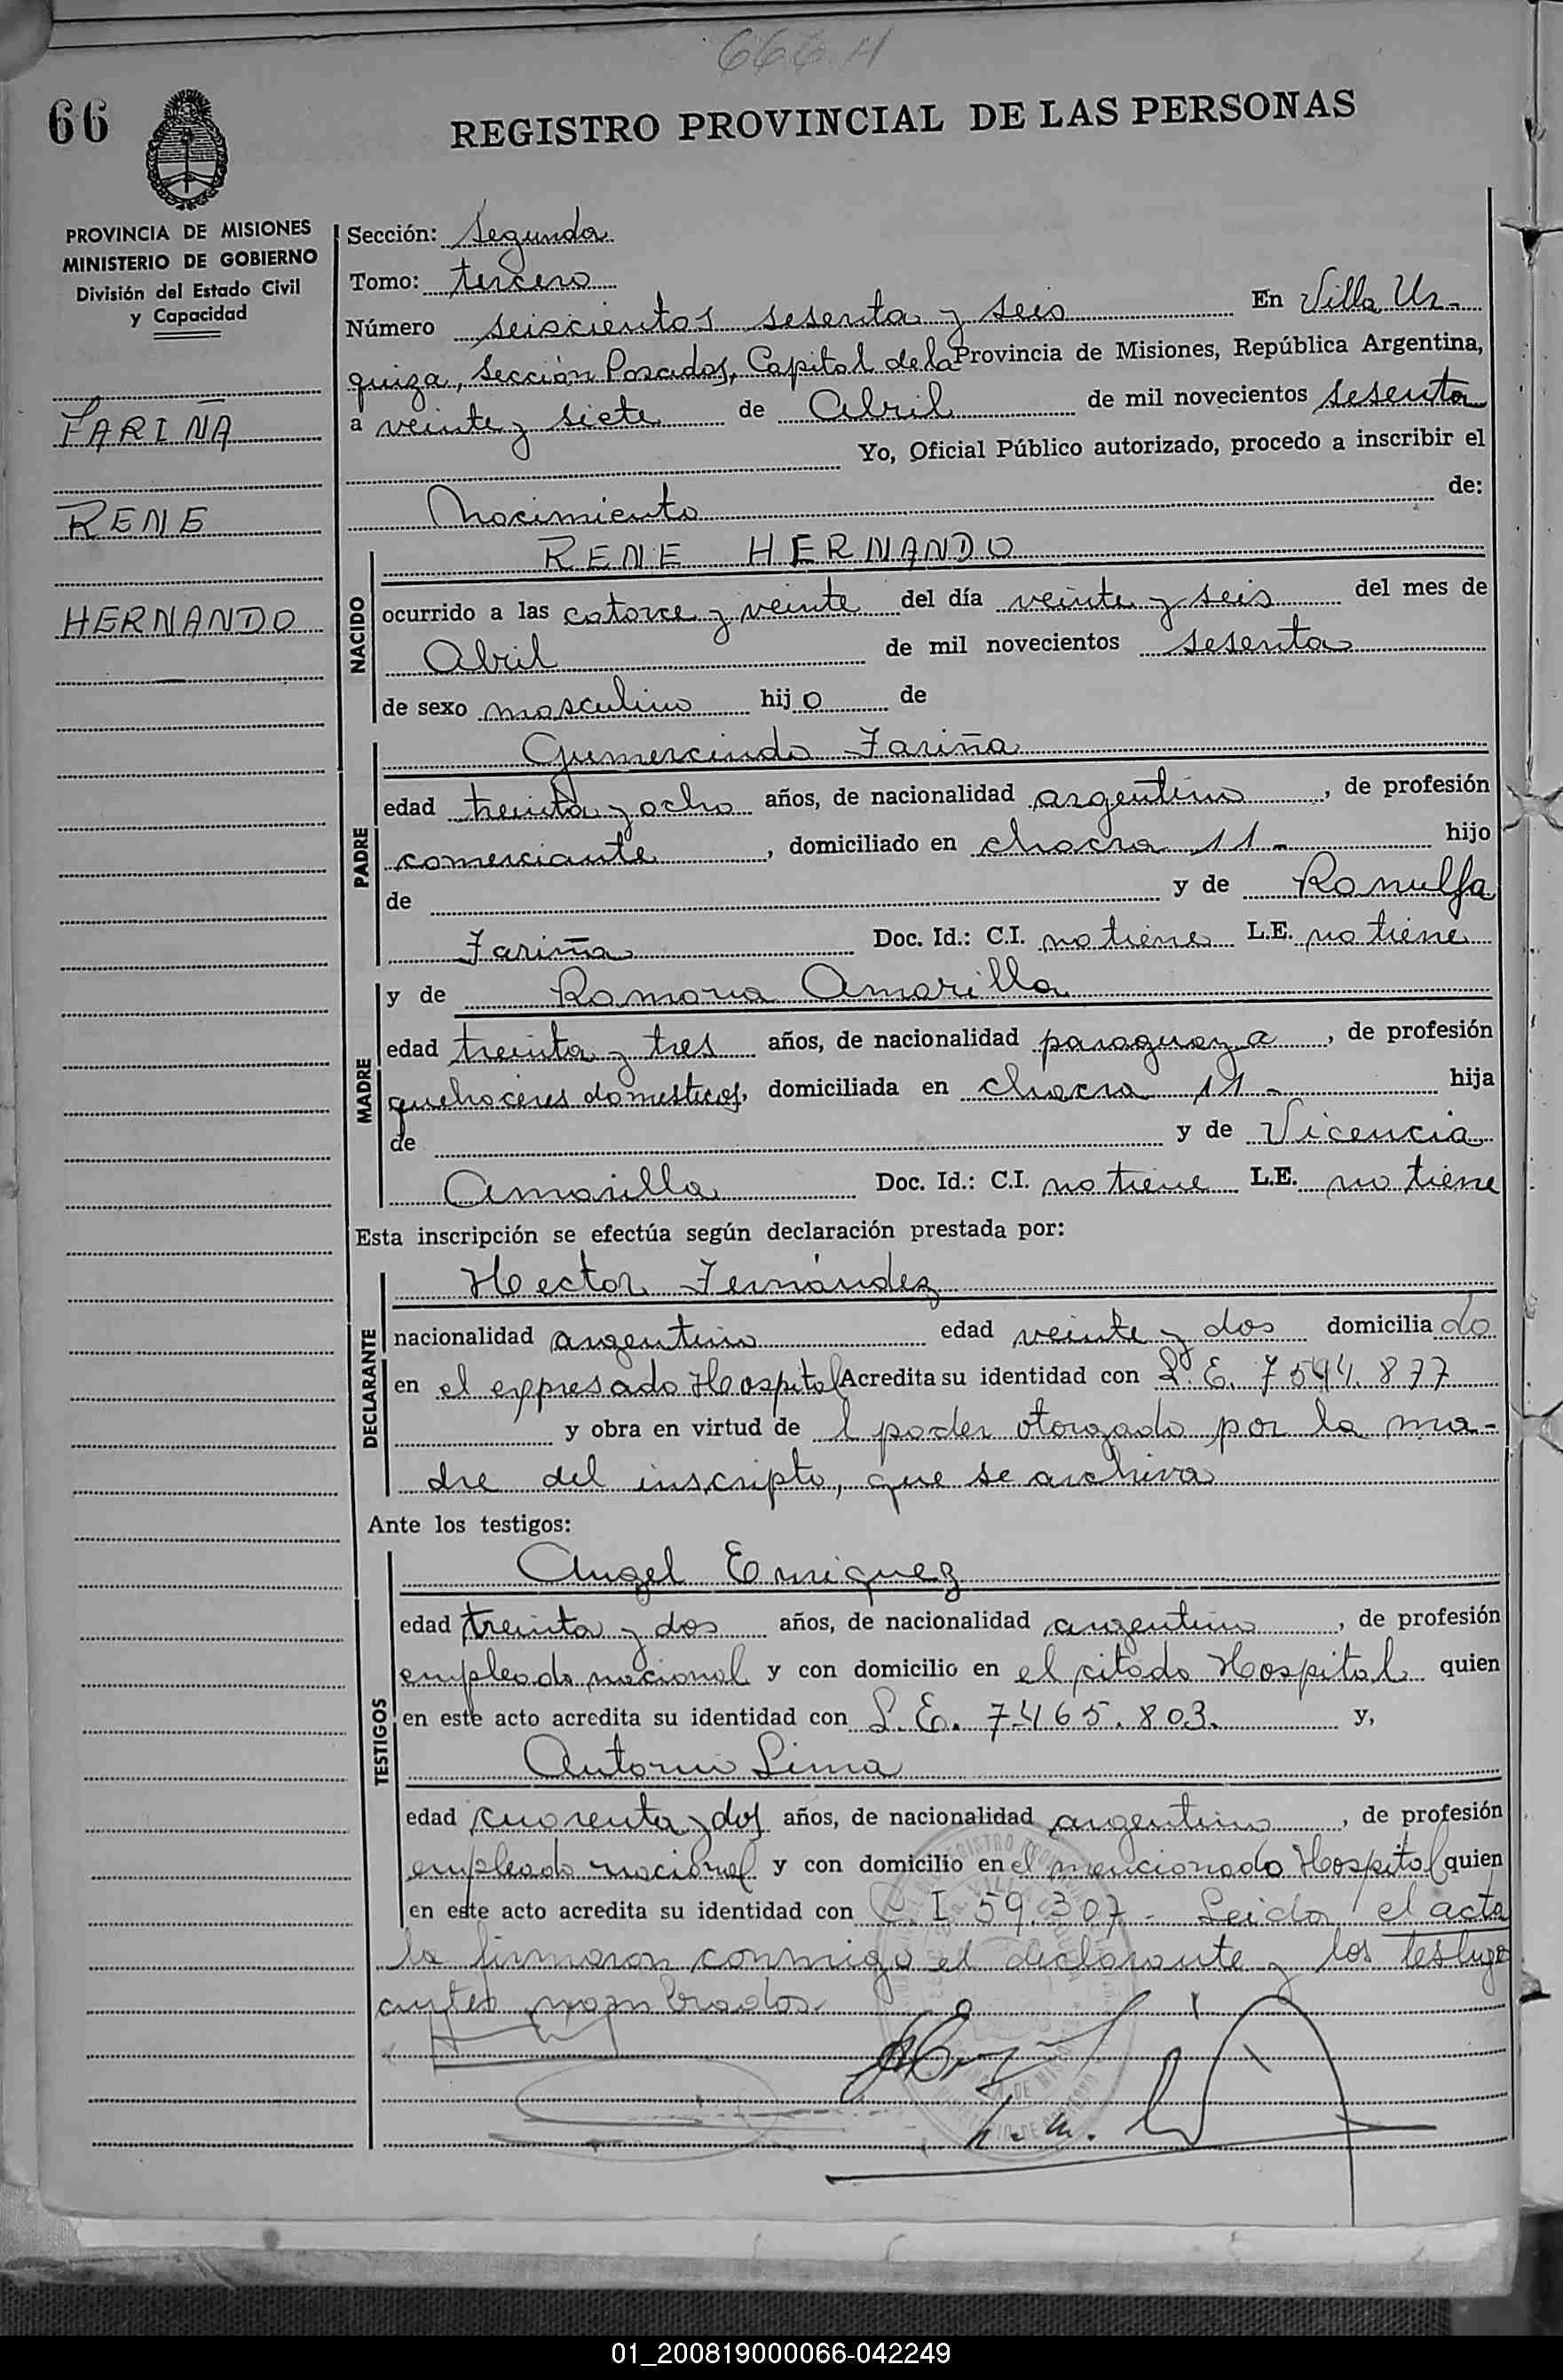 666 H
66
REGISTRO PROVINCIAL DE LAS PERSONAS
PROVINCIA DE MISIONES
MINISTERIO DE GOBIERNO
División del Estado Civil
y Capacidad
FARIÑA
RENE
HERNANDO
Sección: Segunda
Tomo: tercero
Número seiscientos sesenta y seis En Villa Ur-
quiza, Sección Posadas, Capital de la Provincia de Misiones, República Argentina,
a veinte y siete de Abril de mil novecientos sesenta
Yo, Oficial Público autorizado, procedo a inscribir el
Nacimiento de:
NACIDO
RENE HERNANDO
ocurrido a las catorce y veinte del día veinte y seis del mes de
Abril de mil novecientos sesenta
de sexo masculino hijo de
PADRE
Gumercindo Fariña
edad treinta y ocho años, de nacionalidad argentino, de profesión
comerciante, domiciliado en chacra 11 - hijo
de y de Ramulfa
Fariña Doc. Id.: C.I. no tiene L.E. no tiene
MADRE
y de Ramona Amarilla
edad treinta y tres años, de nacionalidad paraguaya, de profesión
quehaceres domesticos, domiciliada en chacra 11 - hija
de y de Vicencia
Amarilla Doc. Id.: C.I. no tiene L.E. no tiene
Esta inscripción se efectúa según declaración prestada por:
DECLARANTE
Hector Fernández
nacionalidad argentino edad veinte y dos domiciliado
en el expresado Hospital Acredita su identidad con L.E. 7544.877
y obra en virtud de l poder otorgado por la ma-
dre del inscripto, que se archiva
Ante los testigos:
TESTIGOS
Angel Enriquez
edad treinta y dos años, de nacionalidad argentino, de profesión
empleado nacional y con domicilio en el citado Hospital quien
en este acto acredita su identidad con L.E. 7465.803. y,
Antonio Lima
edad cuarenta y dos años, de nacionalidad argentino, de profesión
empleado nacional y con domicilio en el mencionado Hospital quien
en este acto acredita su identidad con C.I 59.307 - Leida el acta
la firmaron conmigo el declarante y los testigo
antes nombrados
01_200819000066-042249